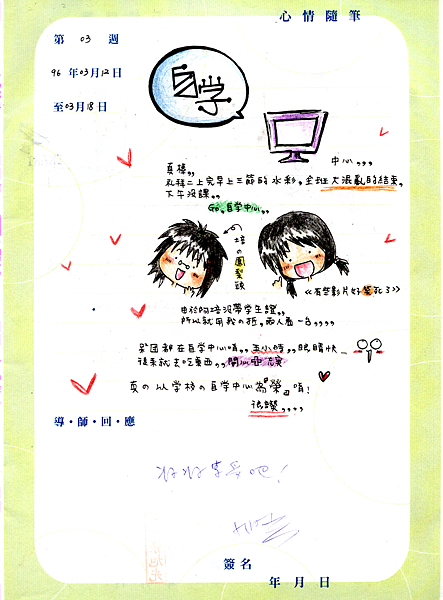 心情隨筆
第 03 週
96 年 03月 12日
至 03月 18日
自学
中心,,,
真棒,,
礼拜二上完早上三節的水彩。全班大混亂的結束,
下午没課,,,
Go。自学中心,,
培の鳳梨頭
<<有些影片好驚死了>>
由於阿培沒帶学生證,,
所以就用我の抵。兩人看一台,,,,
都在自学中心唷,,五小時,,眼睛快...
後來就去吃東西,,開心
真の以学校の自学中心為榮。唷!
很讚,,,,
導・師・回・應
簽名
年 月 日